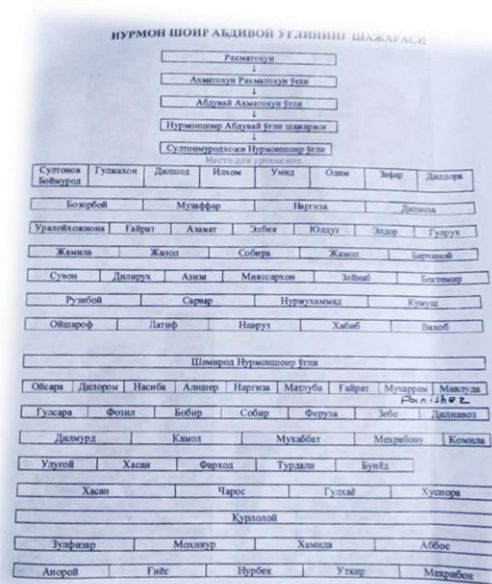 НУРМОН ШОИР АБДИВОЙ ЎҒЛИНИНГ ШАЖАРАСИ
Рахматохун
↓
Ахматохун Рахматохун ўғли
↓
Абдувай Ахматохун ўғли
↓
Нурмоншоир Абдувай ўғли шажараси
↓
Султонмуродхожи Нурмоншоир ўғли
Место для уравнения.
Султонов Боймурод Гулжахон Дилшод Илхом Умид Олим Зафар Дилдора
Бозорбой Музаффар Наргиза Дилноза
Уралойхожиона Ғайрат Азамат Элбек Юлдуз Элдор Гулрух
Жамила Жалол Собира Жамол Барчиной
Сувон Дилирух Азиза Мияссархон Зайнаб Бектемир
Рузибой Сарвар Нурмухаммад Кумуш
Ойшароф Латиф Навруз Хабиб Вахоб
Шомирод Нурмоншоир ўғли
Ойсара Дилором Насиба Алишер Наргиза Матлуба Ғайрат Мухаррам Мавлуда
Гулсара Фозил Бобир Собир Феруза Зебо Дилнавоз
Дилмурд Камол Мухаббат Мехрибону Комила
Улуғой Хасан Фарход Турдали Бунёд
Хасан Чарос Гулхаё Хуснора
Қурлолой
Зулфизар Мохинур Хамида Аббос
Анорой Ғиёс Нурбек Уткир Мехрибон